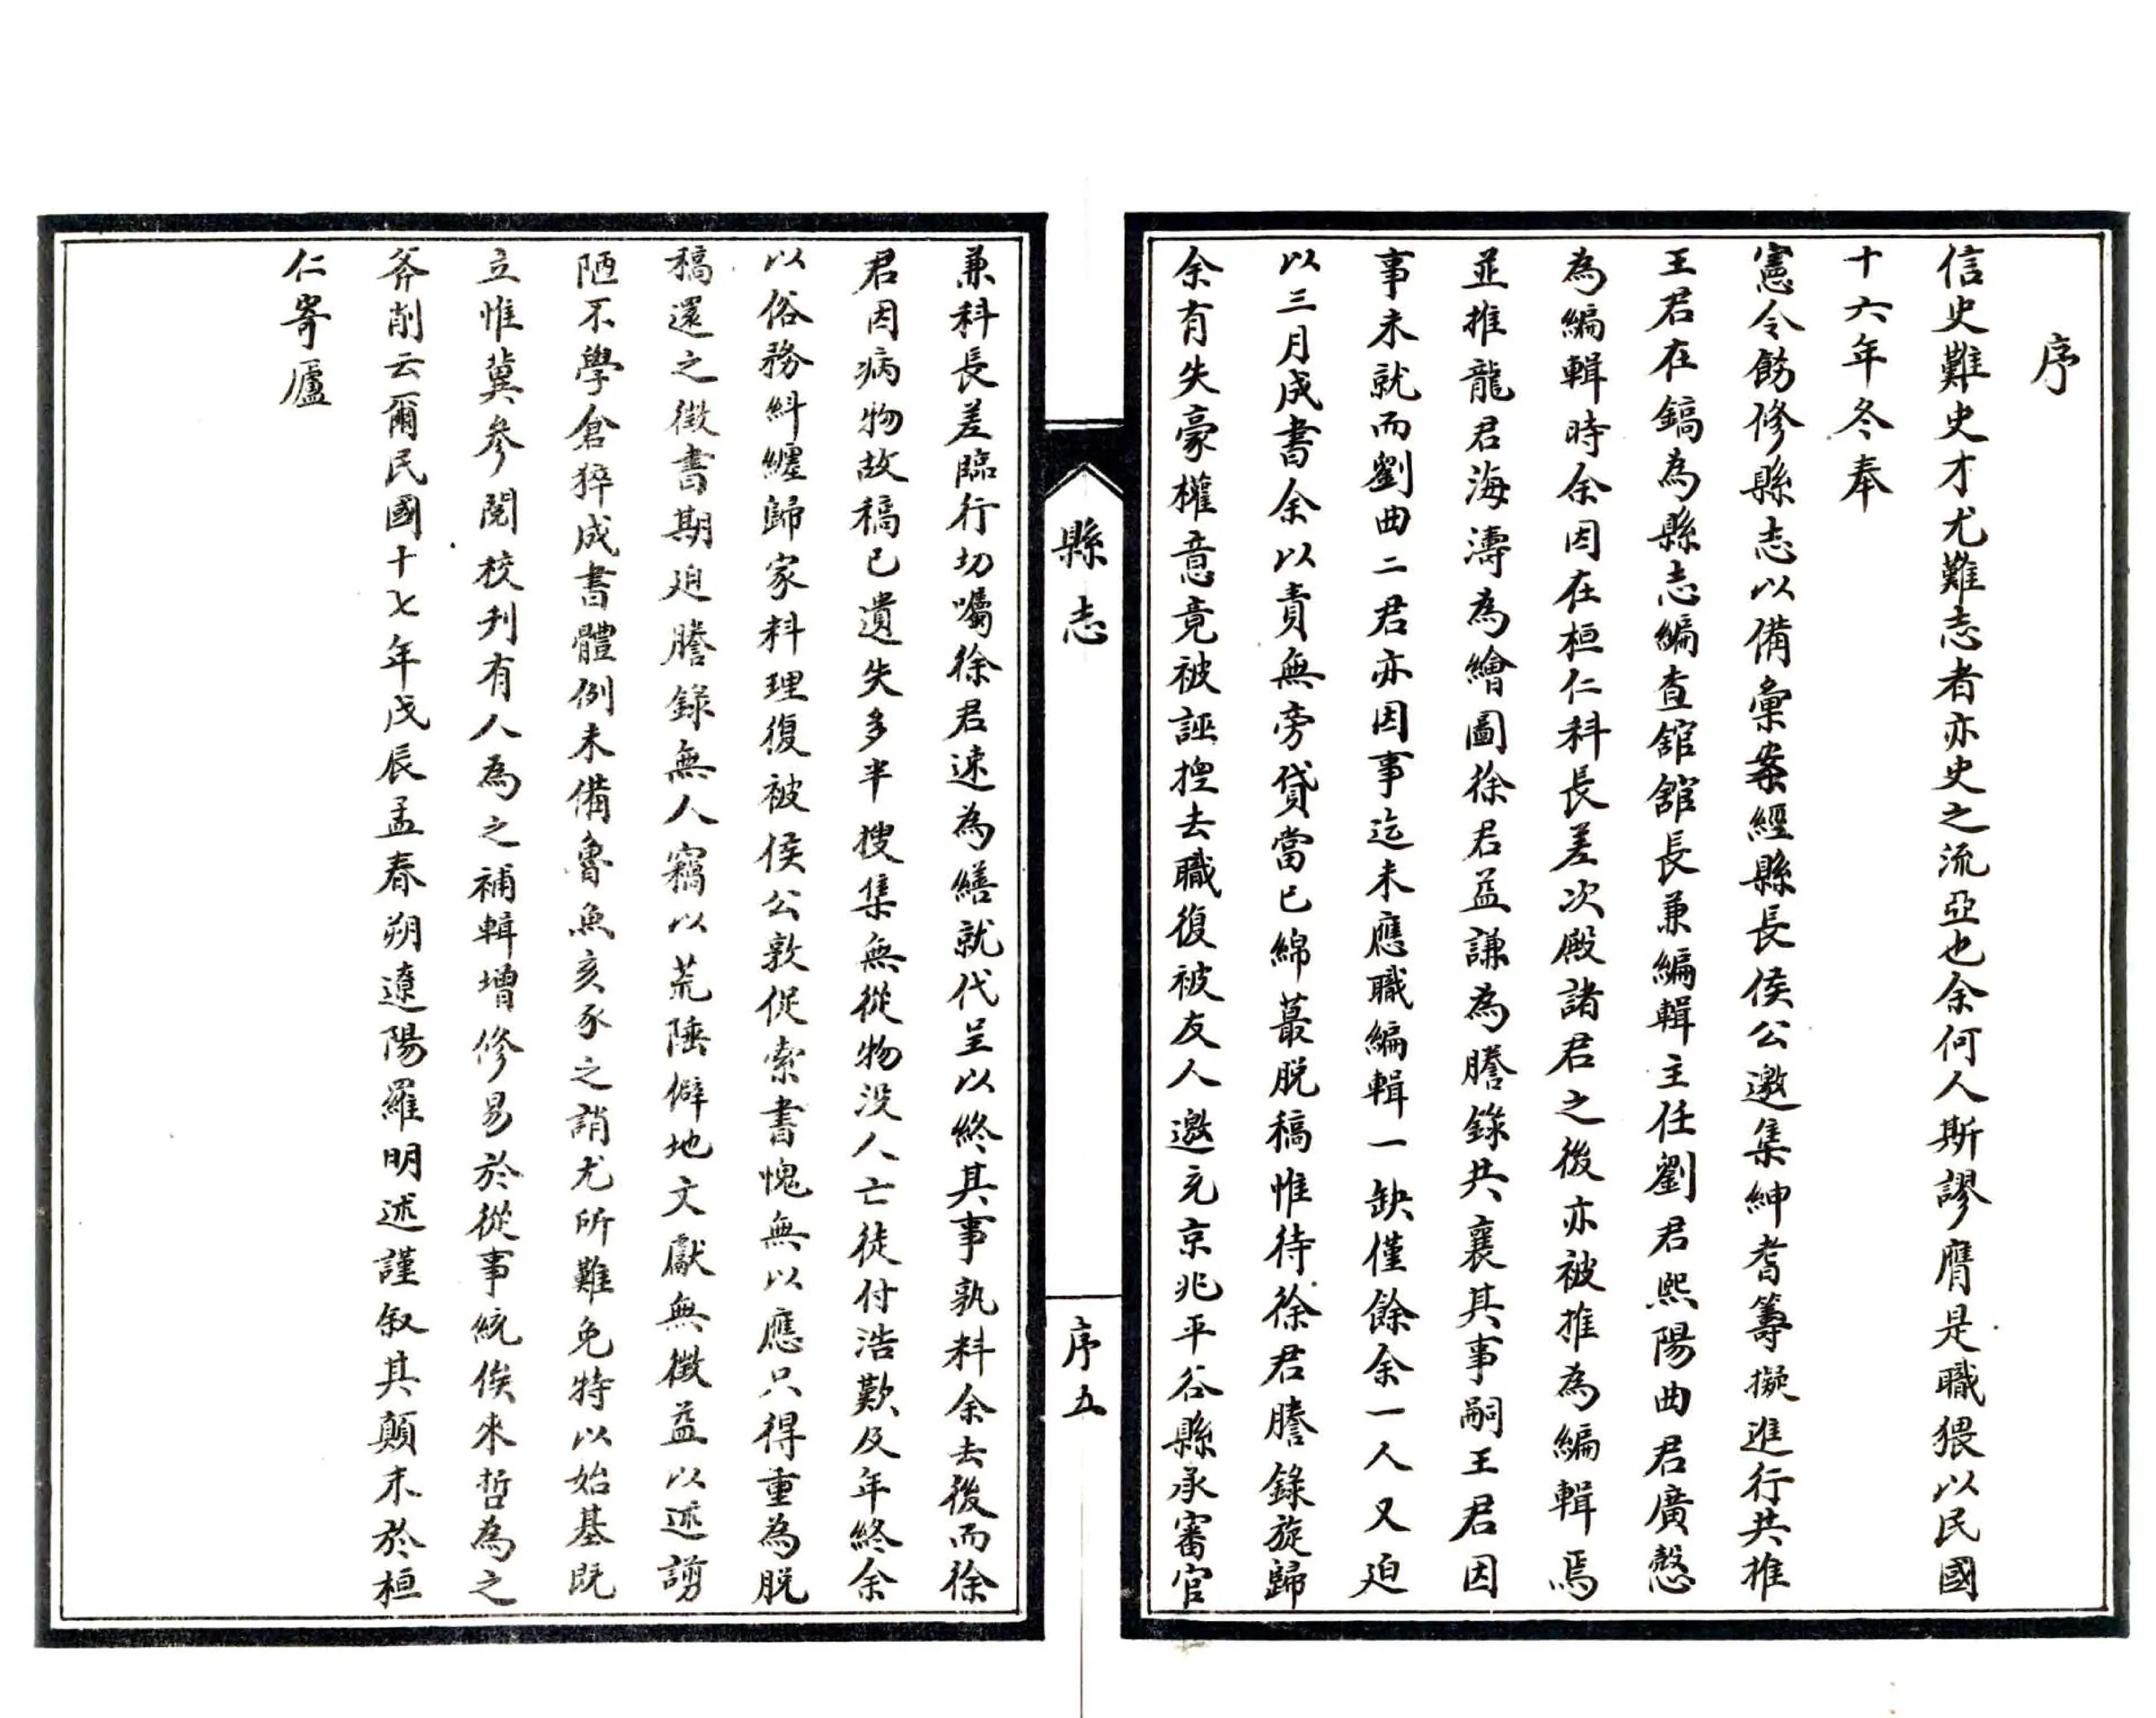 序
信史難史才尤難志者亦史之流亞也余何人斯謬膺是職猥以民國
十六年冬奉
憲令飭修縣志以備彙案經縣長侯公邀集紳耆籌擬進行共推
王君在鎬為縣志編查舘舘長兼編輯主任劉君熙陽曲君廣慤
為編輯時余因在桓仁科長差次殿諸君之後亦被推為編輯焉
並推龍君海濤為繪圖徐君益謙為謄錄共襄其事嗣王君因
事未就而劉曲二君亦因事迄未應職編輯一缺僅餘余一人又迫
以三月成書余以責無旁貸當已綿蕞脱稿惟待徐君謄錄旋歸
余有失豪權意竟被誣控去職復被友人邀充京兆平谷縣承審官
縣志
序五
兼科長差臨行切囑徐君速為繕就代呈以終其事孰料余去後而徐
君因病物故稿已遺失多半搜集無從物没人亡徒付浩歎及年終余
以俗務糾纏歸家料理復被侯公敦促索書愧無以應只得重為脱
稿還之徵書期迫謄錄無人竊以荒陲僻地文獻無徵益以述謭
陋不學倉猝成書體例未備魯魚亥豕之誚尤所難免特以始基既
立惟冀參閲校刋有人為之補輯增修易於從事統俟來哲為之
斧削云爾民國十七年戊辰孟春朔遼陽羅明述謹叙其顛末於桓
仁寄廬